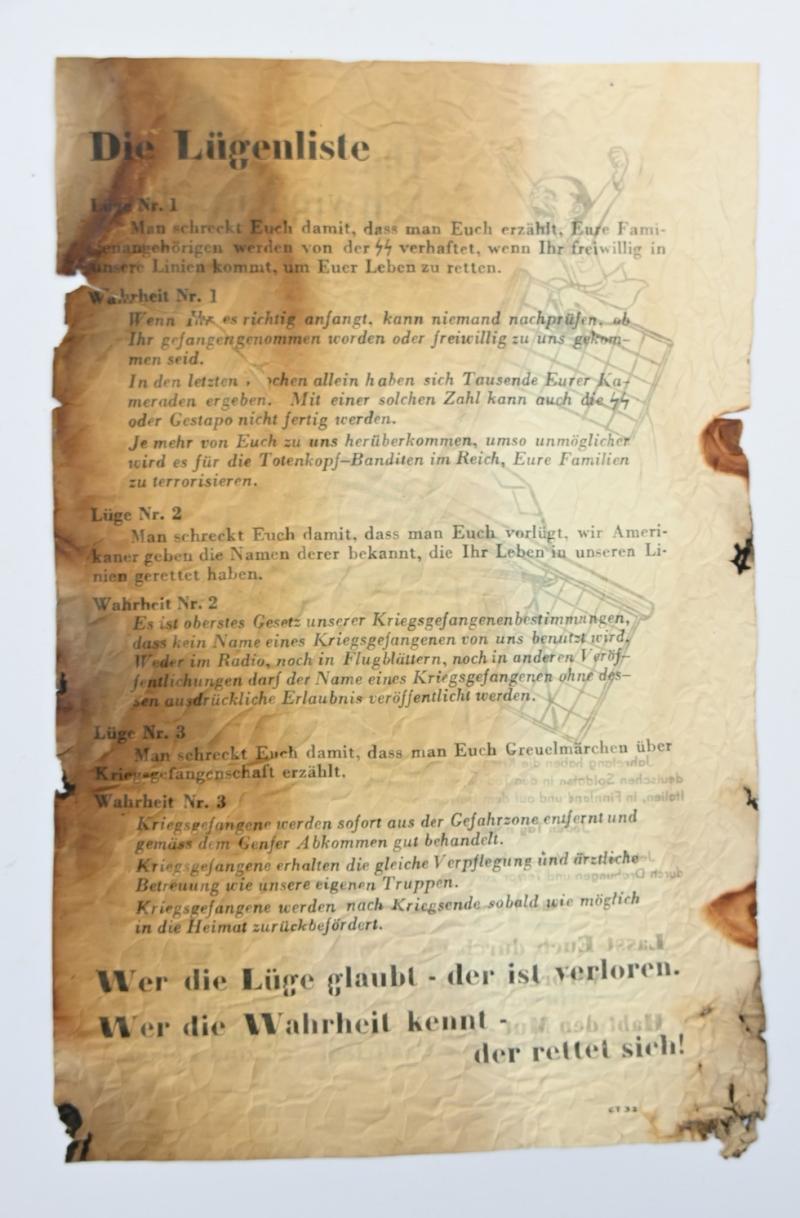 Die Lügenliste
Lüge Nr. 1
Man schreckt Euch damit, dass man Euch erzählt, Eure Fami-
lienangehörigen werden von der ᛋᛋ verhaftet, wenn Ihr freiwillig in
unsere Linien kommt, um Euer Leben zu retten.
Wahrheit Nr. 1
Wenn Ihr es richtig anfangt, kann niemand nachprüfen, ob
Ihr gefangengenommen worden oder freiwillig zu uns gekom-
men seid.
In den letzten allein haben sich Tausende Eurer Ka-
meraden ergeben. Mit einer solchen Zahl kann auch die ᛋᛋ
oder Gestapo nicht fertig werden.
Je mehr von Euch zu uns herüberkommen, umso unmöglicher
wird es für die Totenkopf-Banditen im Reich, Eure Familien
zu terrorisieren.
Lüge Nr. 2
Man schreckt Euch damit, dass man Euch vorlügt, wir Ameri-
kaner geben die Namen derer bekannt, die Ihr Leben in unseren Li-
nien gerettet haben.
Wahrheit Nr. 2
Es ist oberstes Gesetz unserer Kriegsgefangenenbestimmungen,
dass kein Name eines Kriegsgefangenen von uns benutzt wird.
Weder im Radio, noch in Flugblättern, noch in anderen Veröf-
fentlichungen darf der Name eines Kriegsgefangenen ohne des-
sen ausdrückliche Erlaubnis veröffentlicht werden.
Lüge Nr. 3
Man schreckt Euch damit, dass man Euch Greuelmärchen über
Kriegsgefangenschaft erzählt.
Wahrheit Nr. 3
Kriegsgefangene werden sofort aus der Gefahrzone entfernt und
gemäss dem Genfer Abkommen gut behandelt.
Kriegsgefangene erhalten die gleiche Verpflegung und ärztliche
Betreuung wie unsere eigenen Truppen.
Kriegsgefangene werden nach Kriegsende sobald wie möglich
in die Heimat zurückbefördert.
Wer die Lüge glaubt - der ist verloren.
Wer die Wahrheit kennt -
der rettet sich!
CT 32